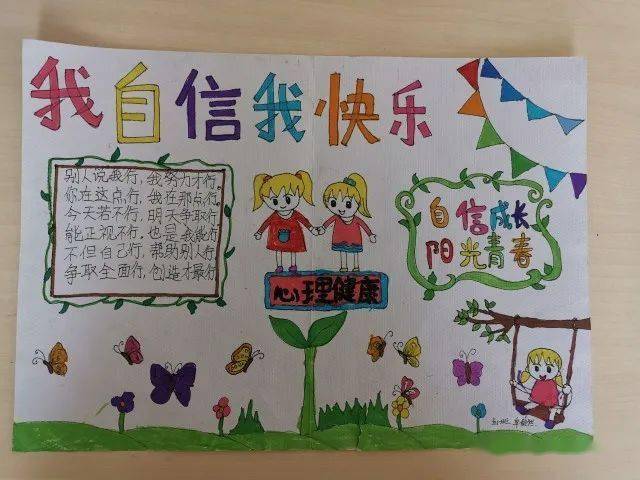 我自信我快乐
别人说我行，我努力才行。
你在这点行，我在那点行。
今天若不行，明天争取行
能正视不行，也是我能行
不但自己行，帮助别人行
争取全面行，创造才最行
自信成长
阳光青春
心理健康